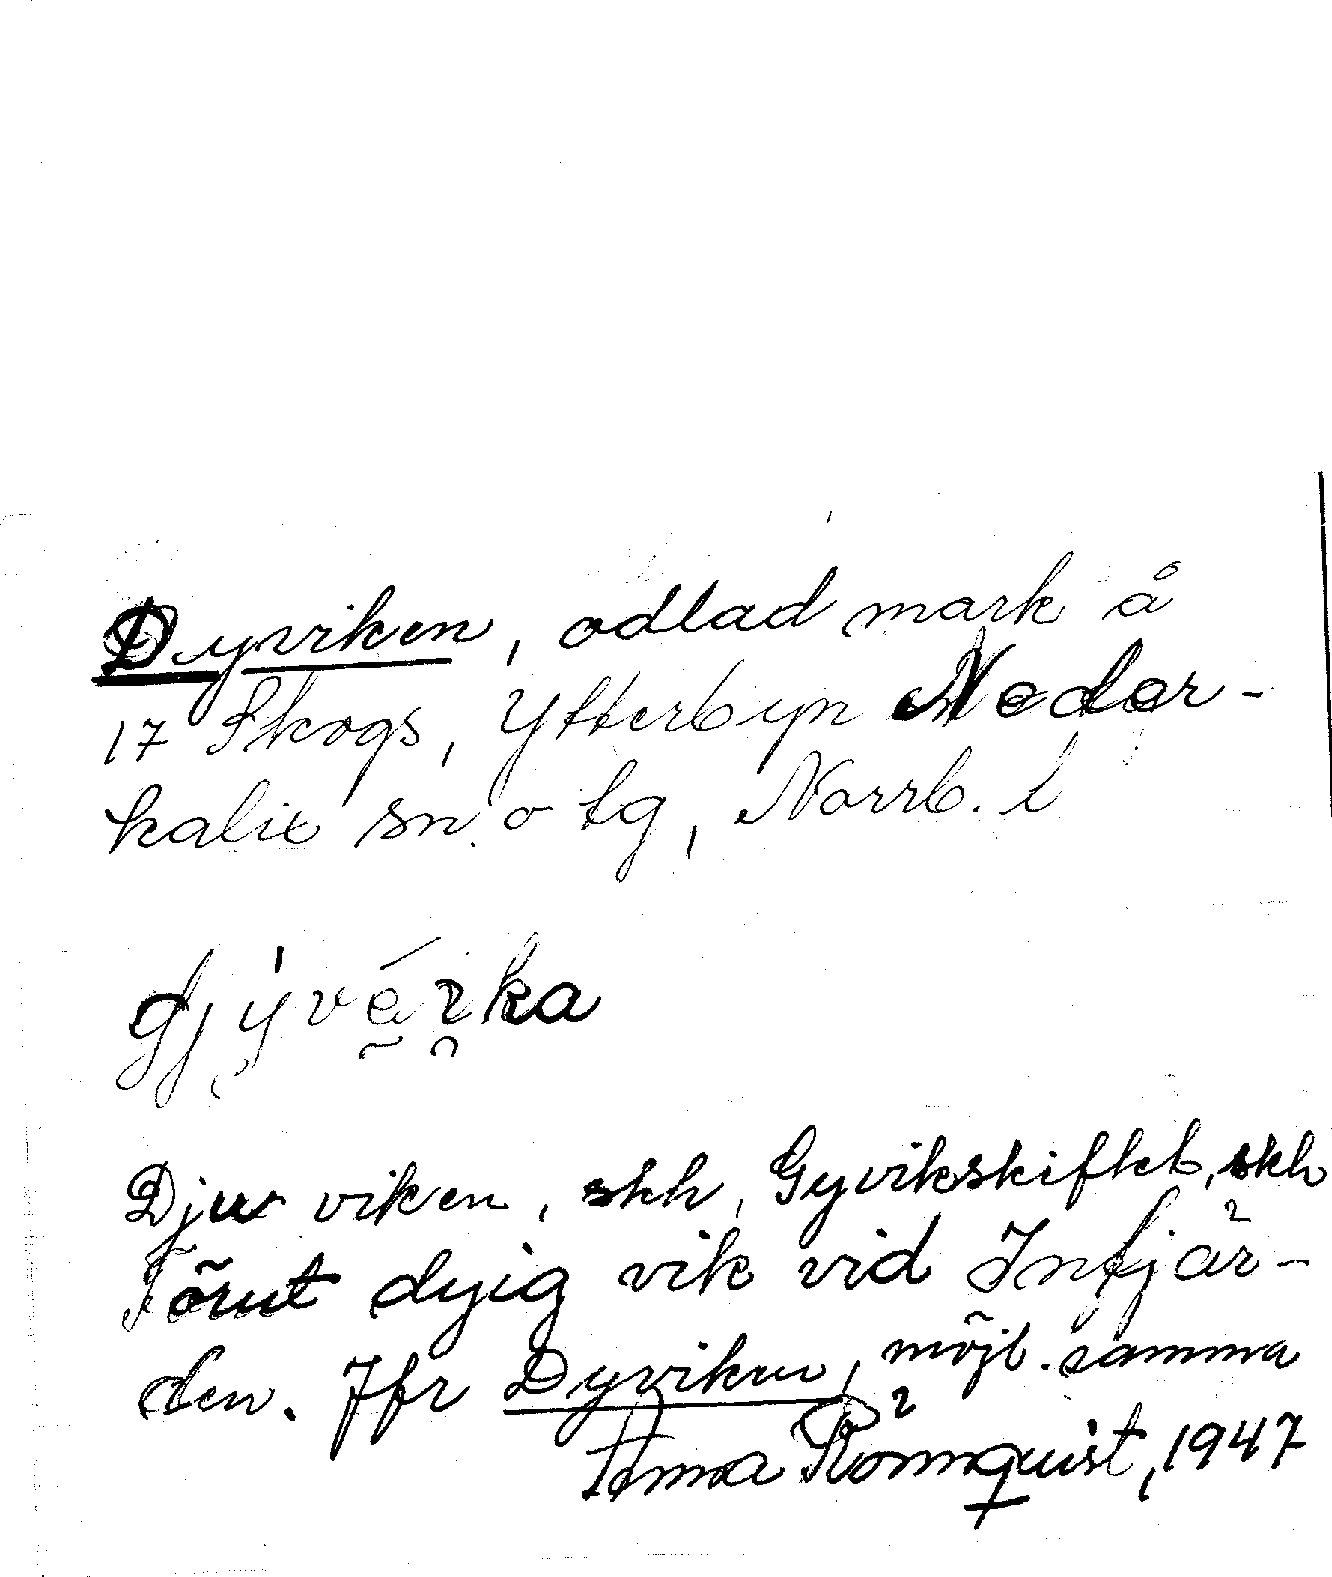 Dyviken, odlad mark å
17 Skogs, Ytterbyn Neder-
kalix sn o tg, Norrb. l
Djur viken, skh, Gyvikskiftet, skh
Förut dyig vik vid Infjär-
den. Jfr Dyviken, möjl. samma
Anna Rönnquist, 1947